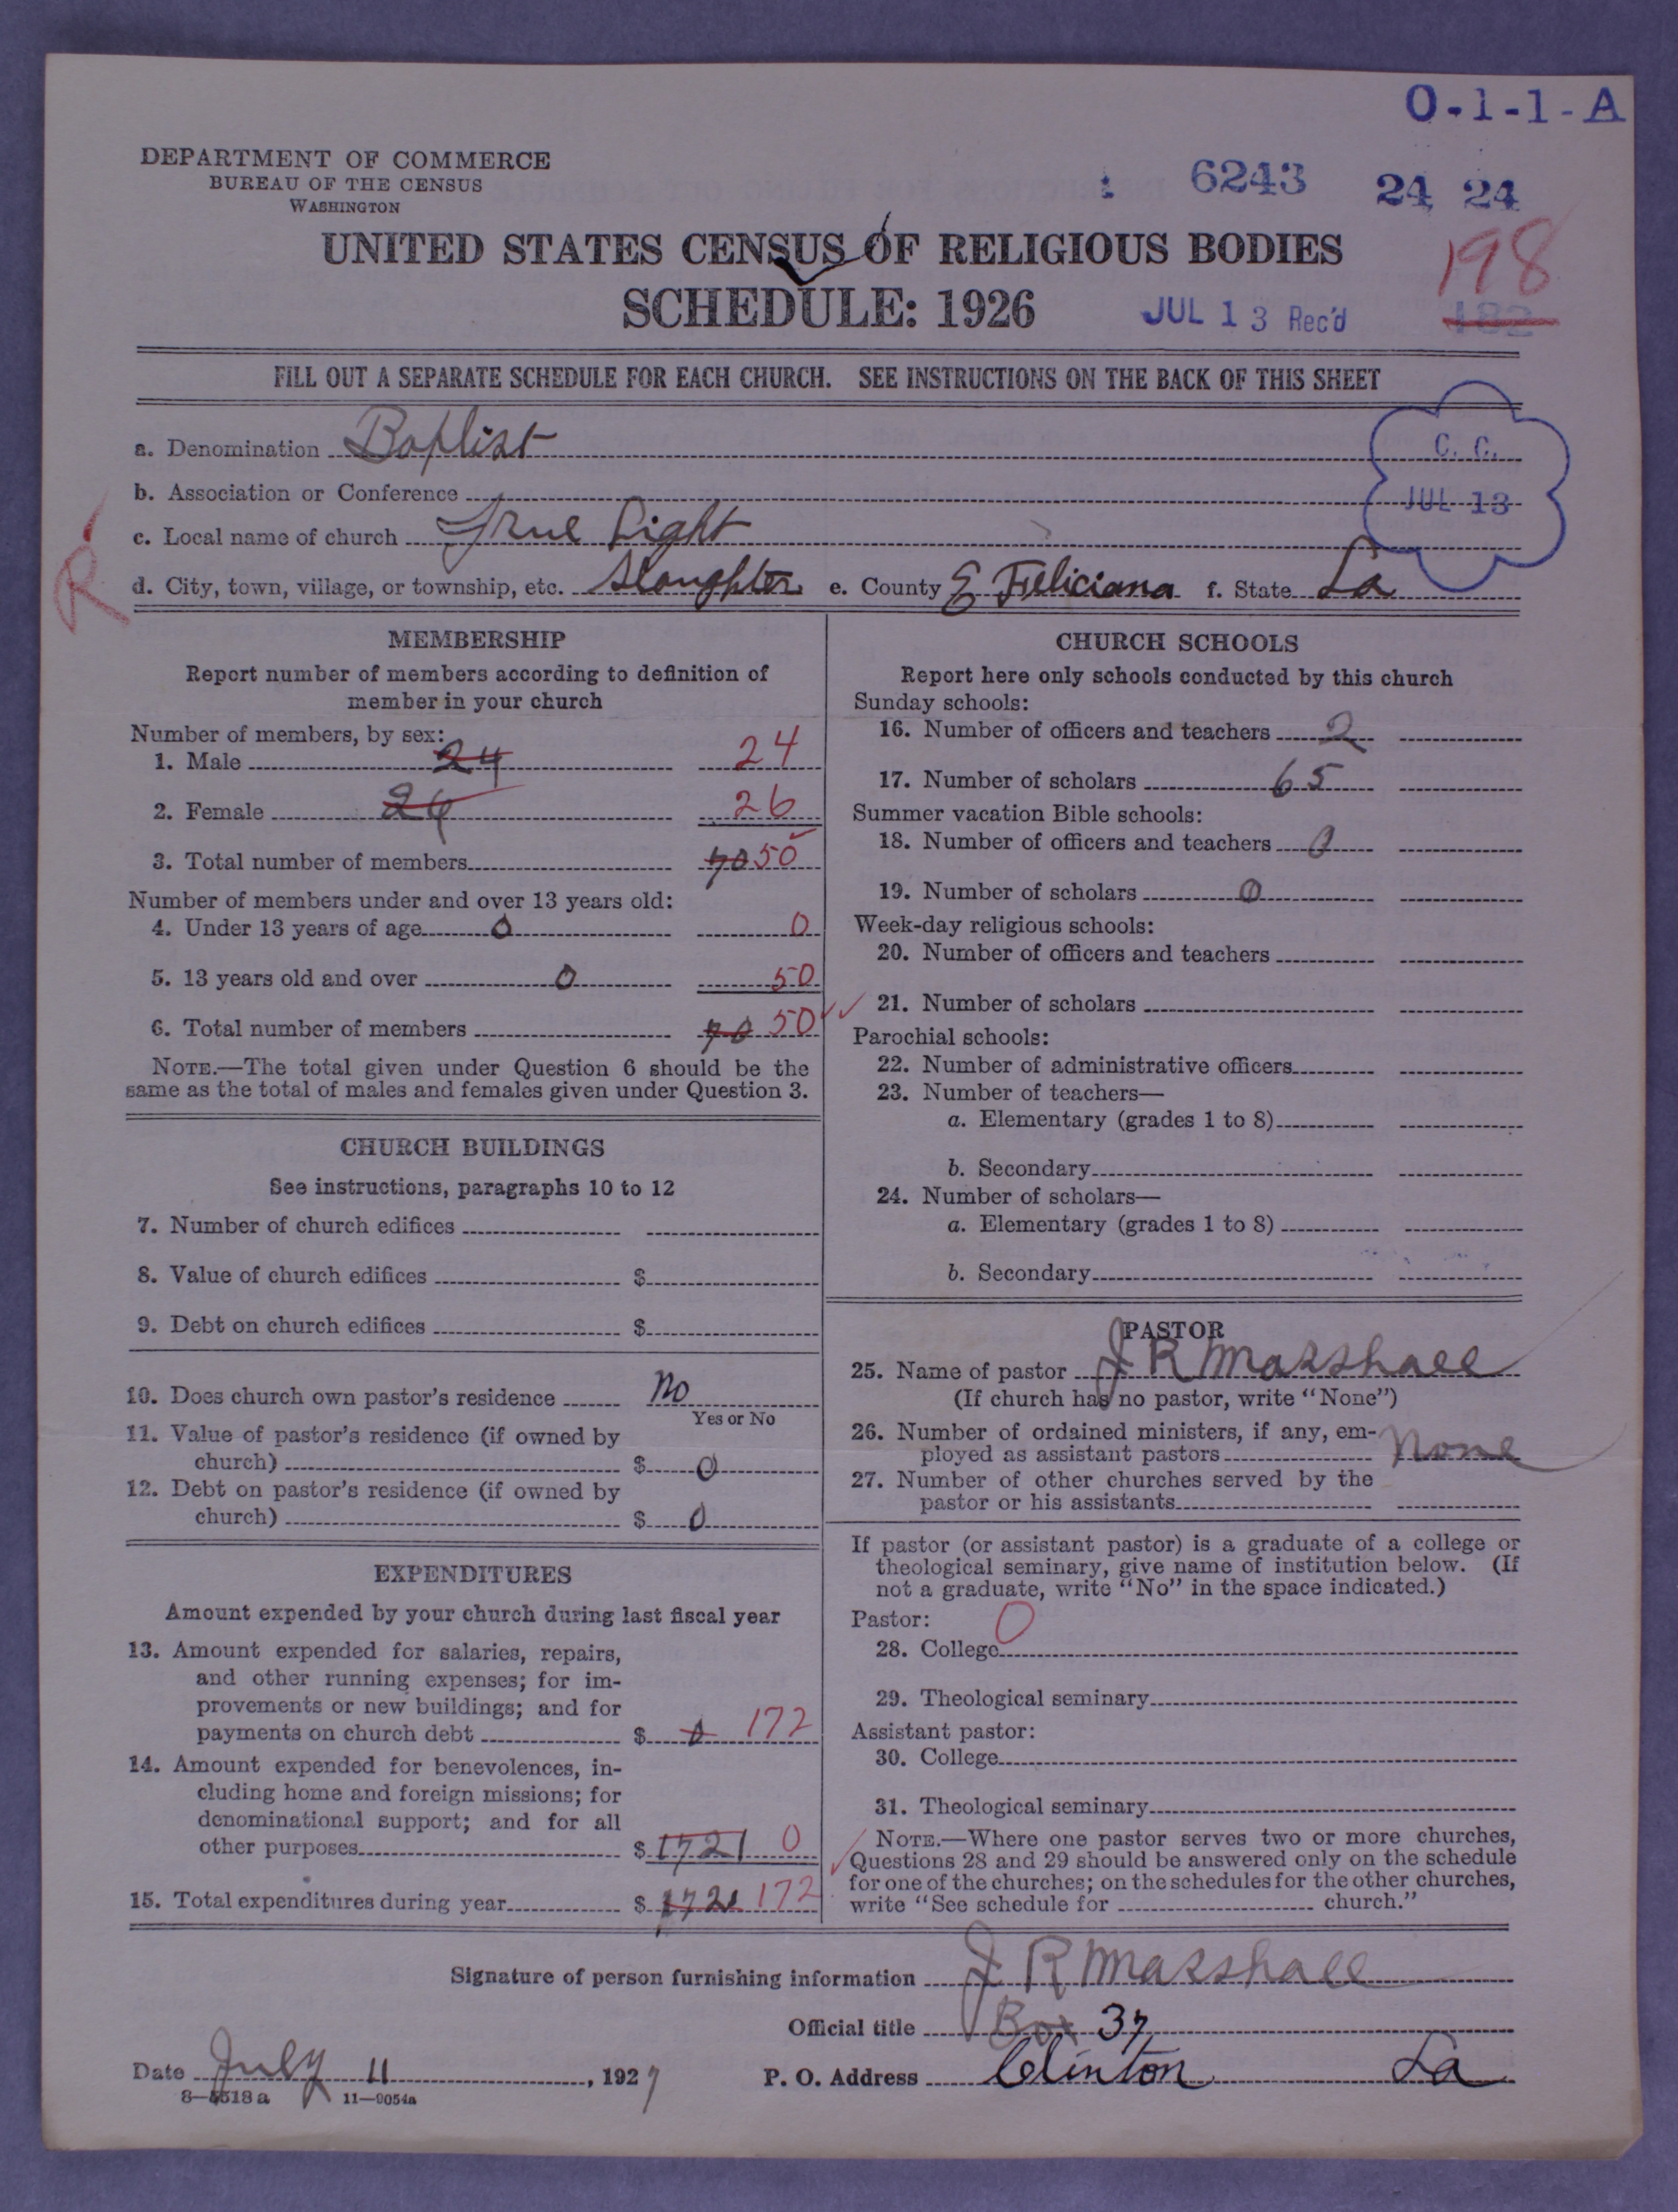 O-1-1-A
DEPARTMENT OF COMMERCE
BUREAU OF THE CENSUS
WASHINGTON
6243 24 24
UNITED STATES CENSUS OF RELIGIOUS BODIES
198
SCHEDULE: 1926 JUL 13 Rec'd 182
FILL OUT A SEPARATE SCHEDULE FOR EACH CHURCH. SEE INSTRUCTIONS ON THE BACK OF THIS SHEET
a. Denomination Baptist
C. C.
b. Association or Conference
JUL 13
c. Local name of church True Light
R
d. City, town, village, or township, etc. Slaughter e. County E Feliciana f. State La
MEMBERSHIP
Report number of members according to definition of
member in your church
Number of members, by sex:
1. Male 24 24
2. Female 26 26
3. Total number of members 70 50
Number of members under and over 13 years old:
4. Under 13 years of age 0 0
5. 13 years old and over 0 50
6. Total number of members 70 50
NOTE.—The total given under Question 6 should be the
same as the total of males and females given under Question 3.
CHURCH BUILDINGS
See instructions, paragraphs 10 to 12
7. Number of church edifices
8. Value of church edifices $
9. Debt on church edifices $
10. Does church own pastor's residence No
Yes or No
11. Value of pastor's residence (if owned by
church) $ 0
12. Debt on pastor's residence (if owned by
church) $ 0
EXPENDITURES
Amount expended by your church during last fiscal year
13. Amount expended for salaries, repairs,
and other running expenses; for im-
provements or new buildings; and for
payments on church debt $ 0 172
14. Amount expended for benevolences, in-
cluding home and foreign missions; for
denominational support; and for all
other purposes $ 1721 0
15. Total expenditures during year $ 1721 172
CHURCH SCHOOLS
Report here only schools conducted by this church
Sunday schools:
16. Number of officers and teachers 2
17. Number of scholars 65
Summer vacation Bible schools:
18. Number of officers and teachers 0
19. Number of scholars 0
Week-day religious schools:
20. Number of officers and teachers
21. Number of scholars
Parochial schools:
22. Number of administrative officers
23. Number of teachers—
a. Elementary (grades 1 to 8)
b. Secondary
24. Number of scholars—
a. Elementary (grades 1 to 8)
b. Secondary
PASTOR
25. Name of pastor J R Marshall
(If church has no pastor, write "None")
26. Number of ordained ministers, if any, em-
ployed as assistant pastors None
27. Number of other churches served by the
pastor or his assistants
If pastor (or assistant pastor) is a graduate of a college or
theological seminary, give name of institution below. (If
not a graduate, write "No" in the space indicated.)
Pastor: 0
28. College
29. Theological seminary
Assistant pastor:
30. College
31. Theological seminary
NOTE.—Where one pastor serves two or more churches,
Questions 28 and 29 should be answered only on the schedule
for one of the churches; on the schedules for the other churches,
write "See schedule for church."
Signature of person furnishing information J R Marshall
Official title Box 37
Date July 11, 1927 P. O. Address Clinton La
8—5518 a 11—9054a